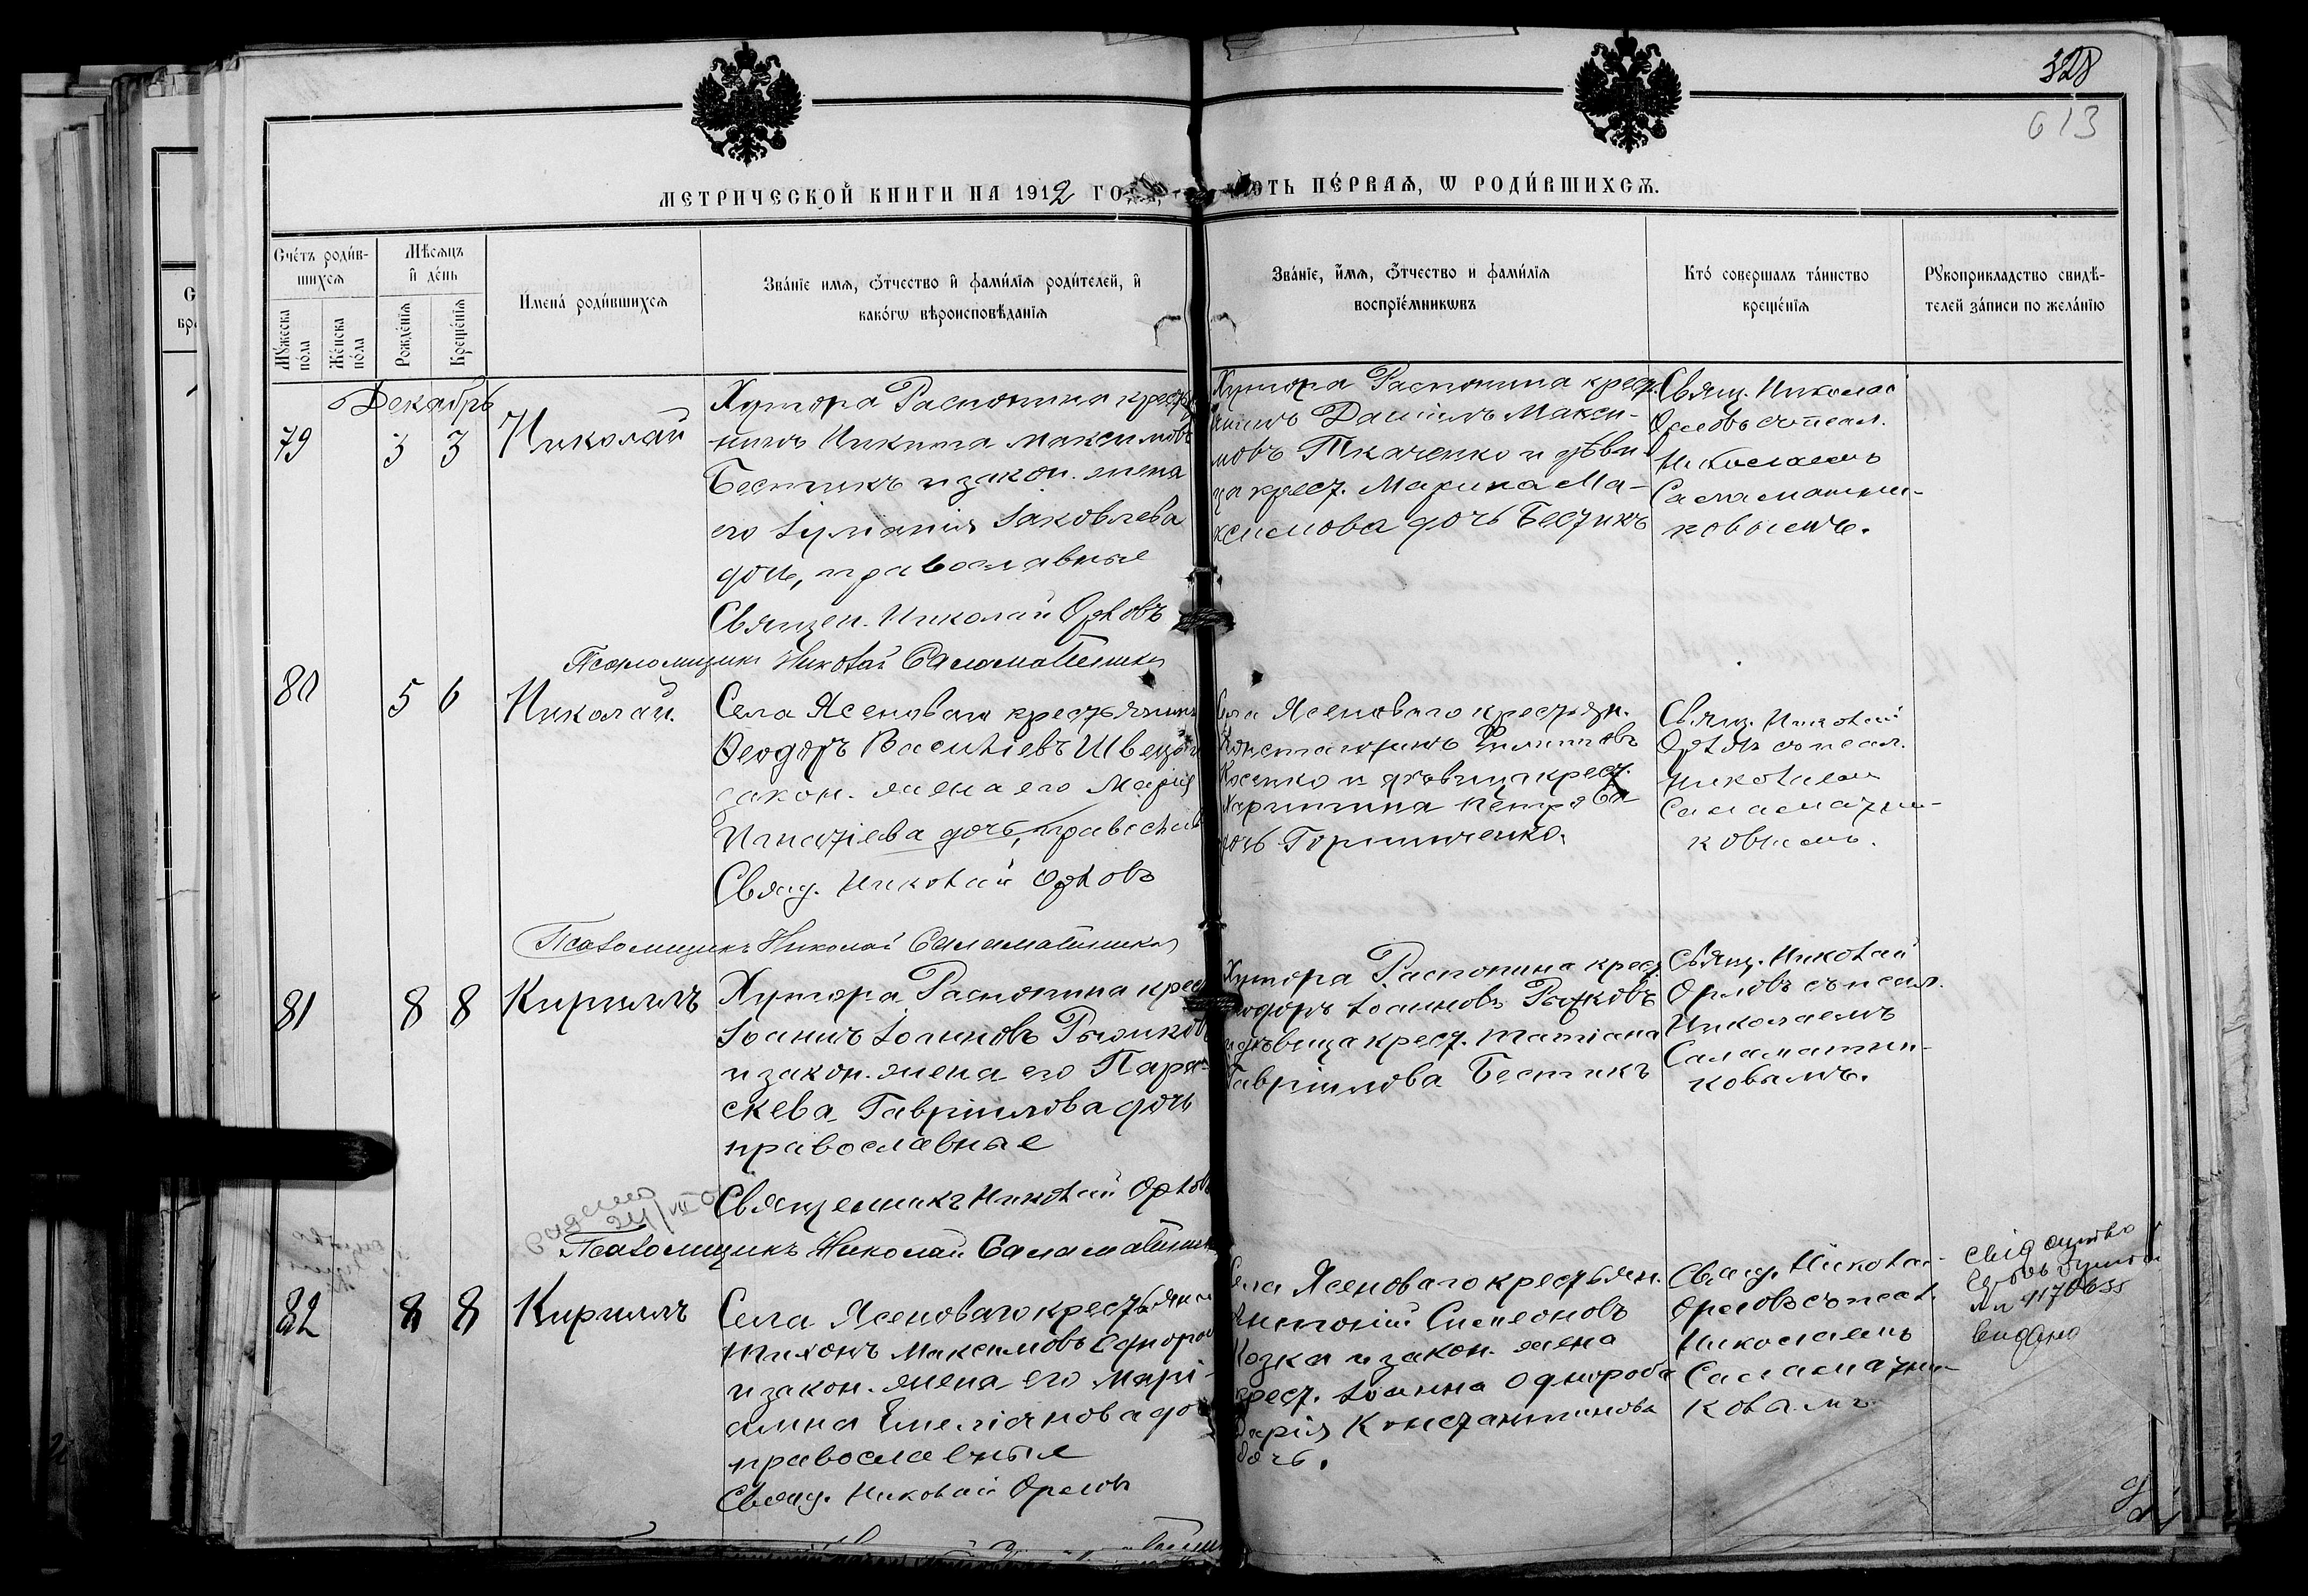 328
613
МЕТРИЧЕСКОЙ КНИГИ НА 1912 ГО
СТЬ ПЕРВАЯ, Ѡ РОДИВШИХСЯ.
Счетъ родив-
шихся
Мѣсяцъ
и день
Мужеска
пола
Женска
пола
Рожденія
Крещенія
Имена родившихся
Званіе имя, ѿчество и фамилія родителей, и
какогѡ вѣроисповѣданія
Званіе, имя, ѿчество и фамилія
воспріемникѡвъ
Кто совершалъ таинство
крещенія
Рукоприкладство свидѣ-
телей записи по желанію
Декабрь
79
3
3
Николай
Хутора Распопина кресть
нинъ Никита Максимовъ
Бестикъ и закон. жена
его Іуліанія Іаковлева
дочь, православные
Священ. Николай Орловъ
Псаломщикъ Николай Саламатниковъ
Хутора Распопина крест.
Даніилъ Макси-
мовъ Ткаченко и дѣви-
ца крест. Марина Ма-
ксимова дочь Бестикъ
Свящ. Николай
Орловъ съ псал.
Николаемъ
Саламатни-
ковымъ.
80
5
6
Николай.
Села Ясеноваго крестьянинъ
Ѳеодоръ Василіевъ Швецъ и
закон. жена его Марія
Игнатіева дочь, правосл
Свящ. Николай Орловъ
Псаломщикъ Николай Саламатниковъ
Села Ясеноваго крестьян.
Константинъ Филипповъ
Косенко и дѣвица крест.
Харитина Петрова
дочь Горпинченко.
Свящ. Николай
Орловъ съ псал.
Николаемъ
Саламатни-
ковымъ.
81
8
8
Кириллъ
Хутора Распопина крес
Іоаннъ Іоанновъ Рыжковъ
и закон. жена его Пара-
скева Гавріилова дочь
православные
Священникъ Николай Орловъ
Псаломщикъ Николай Саламатников
Хутора Распопина крест.
Ѳеодоръ Іоанновъ Рыжковъ
и дѣвица крест. Татіана
Гавріилова Бестикъ
Свящ. Николай
Орловъ съ псал.
Николаемъ
Саламатни-
ковымъ.
82
8
8
Кириллъ
Села Ясеноваго крестьянин
Тихонъ Максимовъ Однороб
и закон. жена его Марі-
амна Емеліанова до
православные
Свящ. Николай Орловъ
Села Ясеноваго крестьян.
Антоній Симеоновъ
Козка и закон. жена
крест. Іоанна Однороба
Марія Константинова
дочь.
Свящ. Николай
Орловъ съ псал.
Николаемъ
Саламатни-
ковымъ
видано